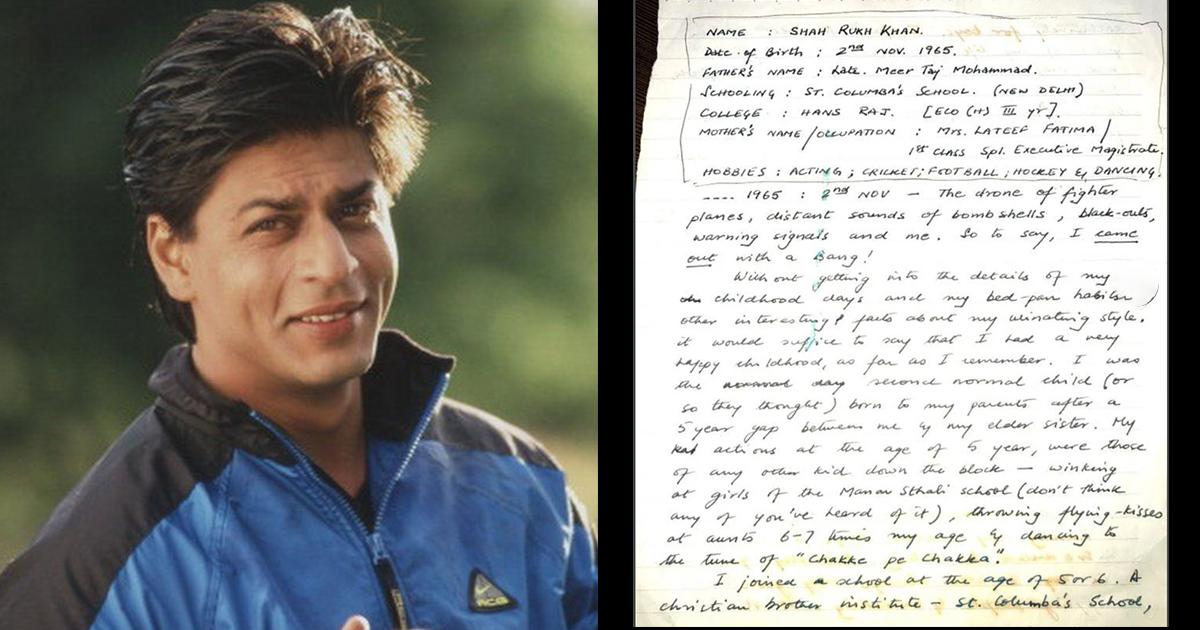 NAME : SHAH RUKH KHAN.
Date of Birth : 2nd NOV. 1965.
FATHER'S NAME : Late. Meer Taj Mohammad.
SCHOOLING : ST. COLUMBA'S SCHOOL. (NEW DELHI)
COLLEGE : HANS RAJ. [ECO (H) III yr].
MOTHER'S NAME/OCCUPATION : Mrs. LATEEF FATIMA/
1st CLASS Spl. Executive Magistrate.
HOBBIES : ACTING ; CRICKET; FOOTBALL ; HOCKEY & DANCING.
---- 1965 : 2nd NOV — The drone of fighter
planes, distant sounds of bombshells, black-outs,
warning signals and me. So to say, I came
out with a Bang!
Without getting into the details of my
childhood days and my bed-pan habits
other interesting facts about my urinating style.
it would suffice to say that I had a very
happy childhood, as far as I remember. I was
the second normal child (or
so they thought) born to my parents after a
5 year gap between me & my elder sister. My
actions at the age of 5 year, were those
of any other kid down the block — winking
at girls of the Manav Sthali school (don't think
any of you've heard of it), throwing flying-kisses
at aunts 6-7 times my age & dancing to
the tune of "Chakke pe Chakka."
I joined a school at the age of 5 or 6. A
christian brother institute — St. Columba's School,
ACG